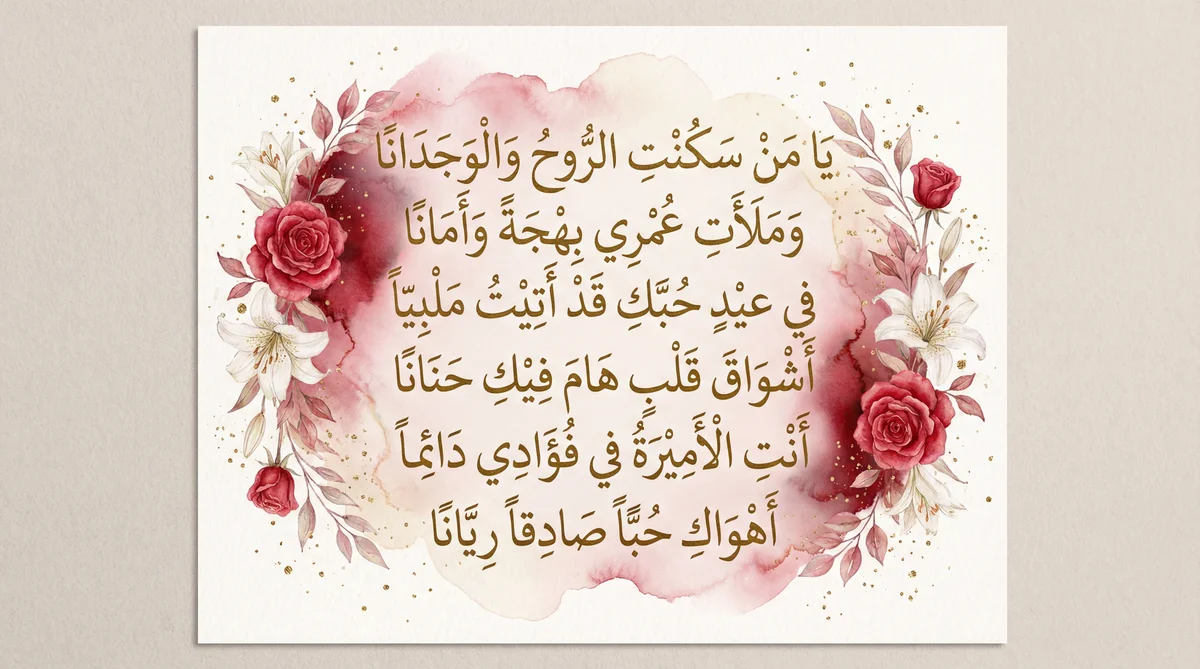 يَا مَنْ سَكُنْتِ الرُّوحُ وَالْوَجَدَانًا
وَمَلَأَتِ عُمْرِي بِهْجَةً وَأَمَانًا
في عيْدٍ حُبَّكِ قَدْ أَتِيْتُ مَلْبِيّاً
أَشْوَاقَ قَلْبٍ هَامَ فِيْكِ حَنَانًا
أَنْتِ الْأَمِيْرَةُ في فُؤَادِي دَائِماً
أَهْوَاكِ حُبًّاً صَادِقاً رِيَّانًا